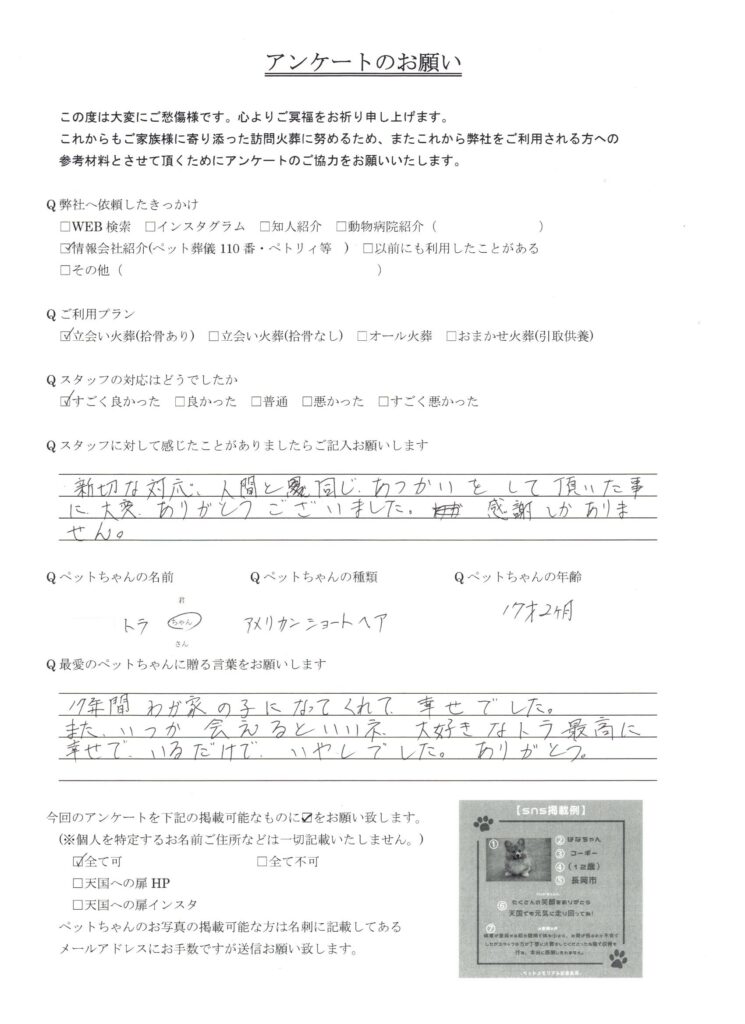 アンケートのお願い
この度は大変にご愁傷様です。心よりご冥福をお祈り申し上げます。
これからもご家族様に寄り添った訪問火葬に努めるため、またこれから弊社をご利用される方への
参考材料とさせて頂くためにアンケートのご協力をお願いいたします。
Q 弊社へ依頼したきっかけ
□WEB 検索 □インスタグラム □知人紹介 □動物病院紹介（ ）
☑情報会社紹介(ペット葬儀 110 番・ペトリィ等 ) □以前にも利用したことがある
□その他（ ）
Q ご利用プラン
☑立会い火葬(拾骨あり) □立会い火葬(拾骨なし) □オール火葬 □おまかせ火葬(引取供養)
Q スタッフの対応はどうでしたか
☑すごく良かった □良かった □普通 □悪かった □すごく悪かった
Q スタッフに対して感じたことがありましたらご記入お願いします
新切な対応、人間と同じ、あつかいをして頂いた事
に大変、ありがとうございました。感謝しかありま
せん。
Q ペットちゃんの名前 Q ペットちゃんの種類 Q ペットちゃんの年齢
君
トラ ちゃん アメリカンショートヘア 17才2ヶ月
さん
Q 最愛のペットちゃんに贈る言葉をお願いします
17年間 わが家の子になってくれて 幸せでした。
また、いつか 会えるといいネ 大好きなトラ 最高に
幸せで、いるだけで、いやしでした。ありがとう。
今回のアンケートを下記の掲載可能なものに☑をお願い致します。
(※個人を特定するお名前ご住所などは一切記載いたしません。)
☑全て可 □全て不可
□天国への扉 HP
□天国への扉インスタ
ペットちゃんのお写真の掲載可能な方は名刺に記載してある
メールアドレスにお手数ですが送信お願い致します。
【sns掲載例】
① ② はなちゃん
③ コーギー
④ (12歳)
⑤ 長岡市
⑥ たくさんの笑顔をありがとう
天国でも元気に走り回ってね!
⑦